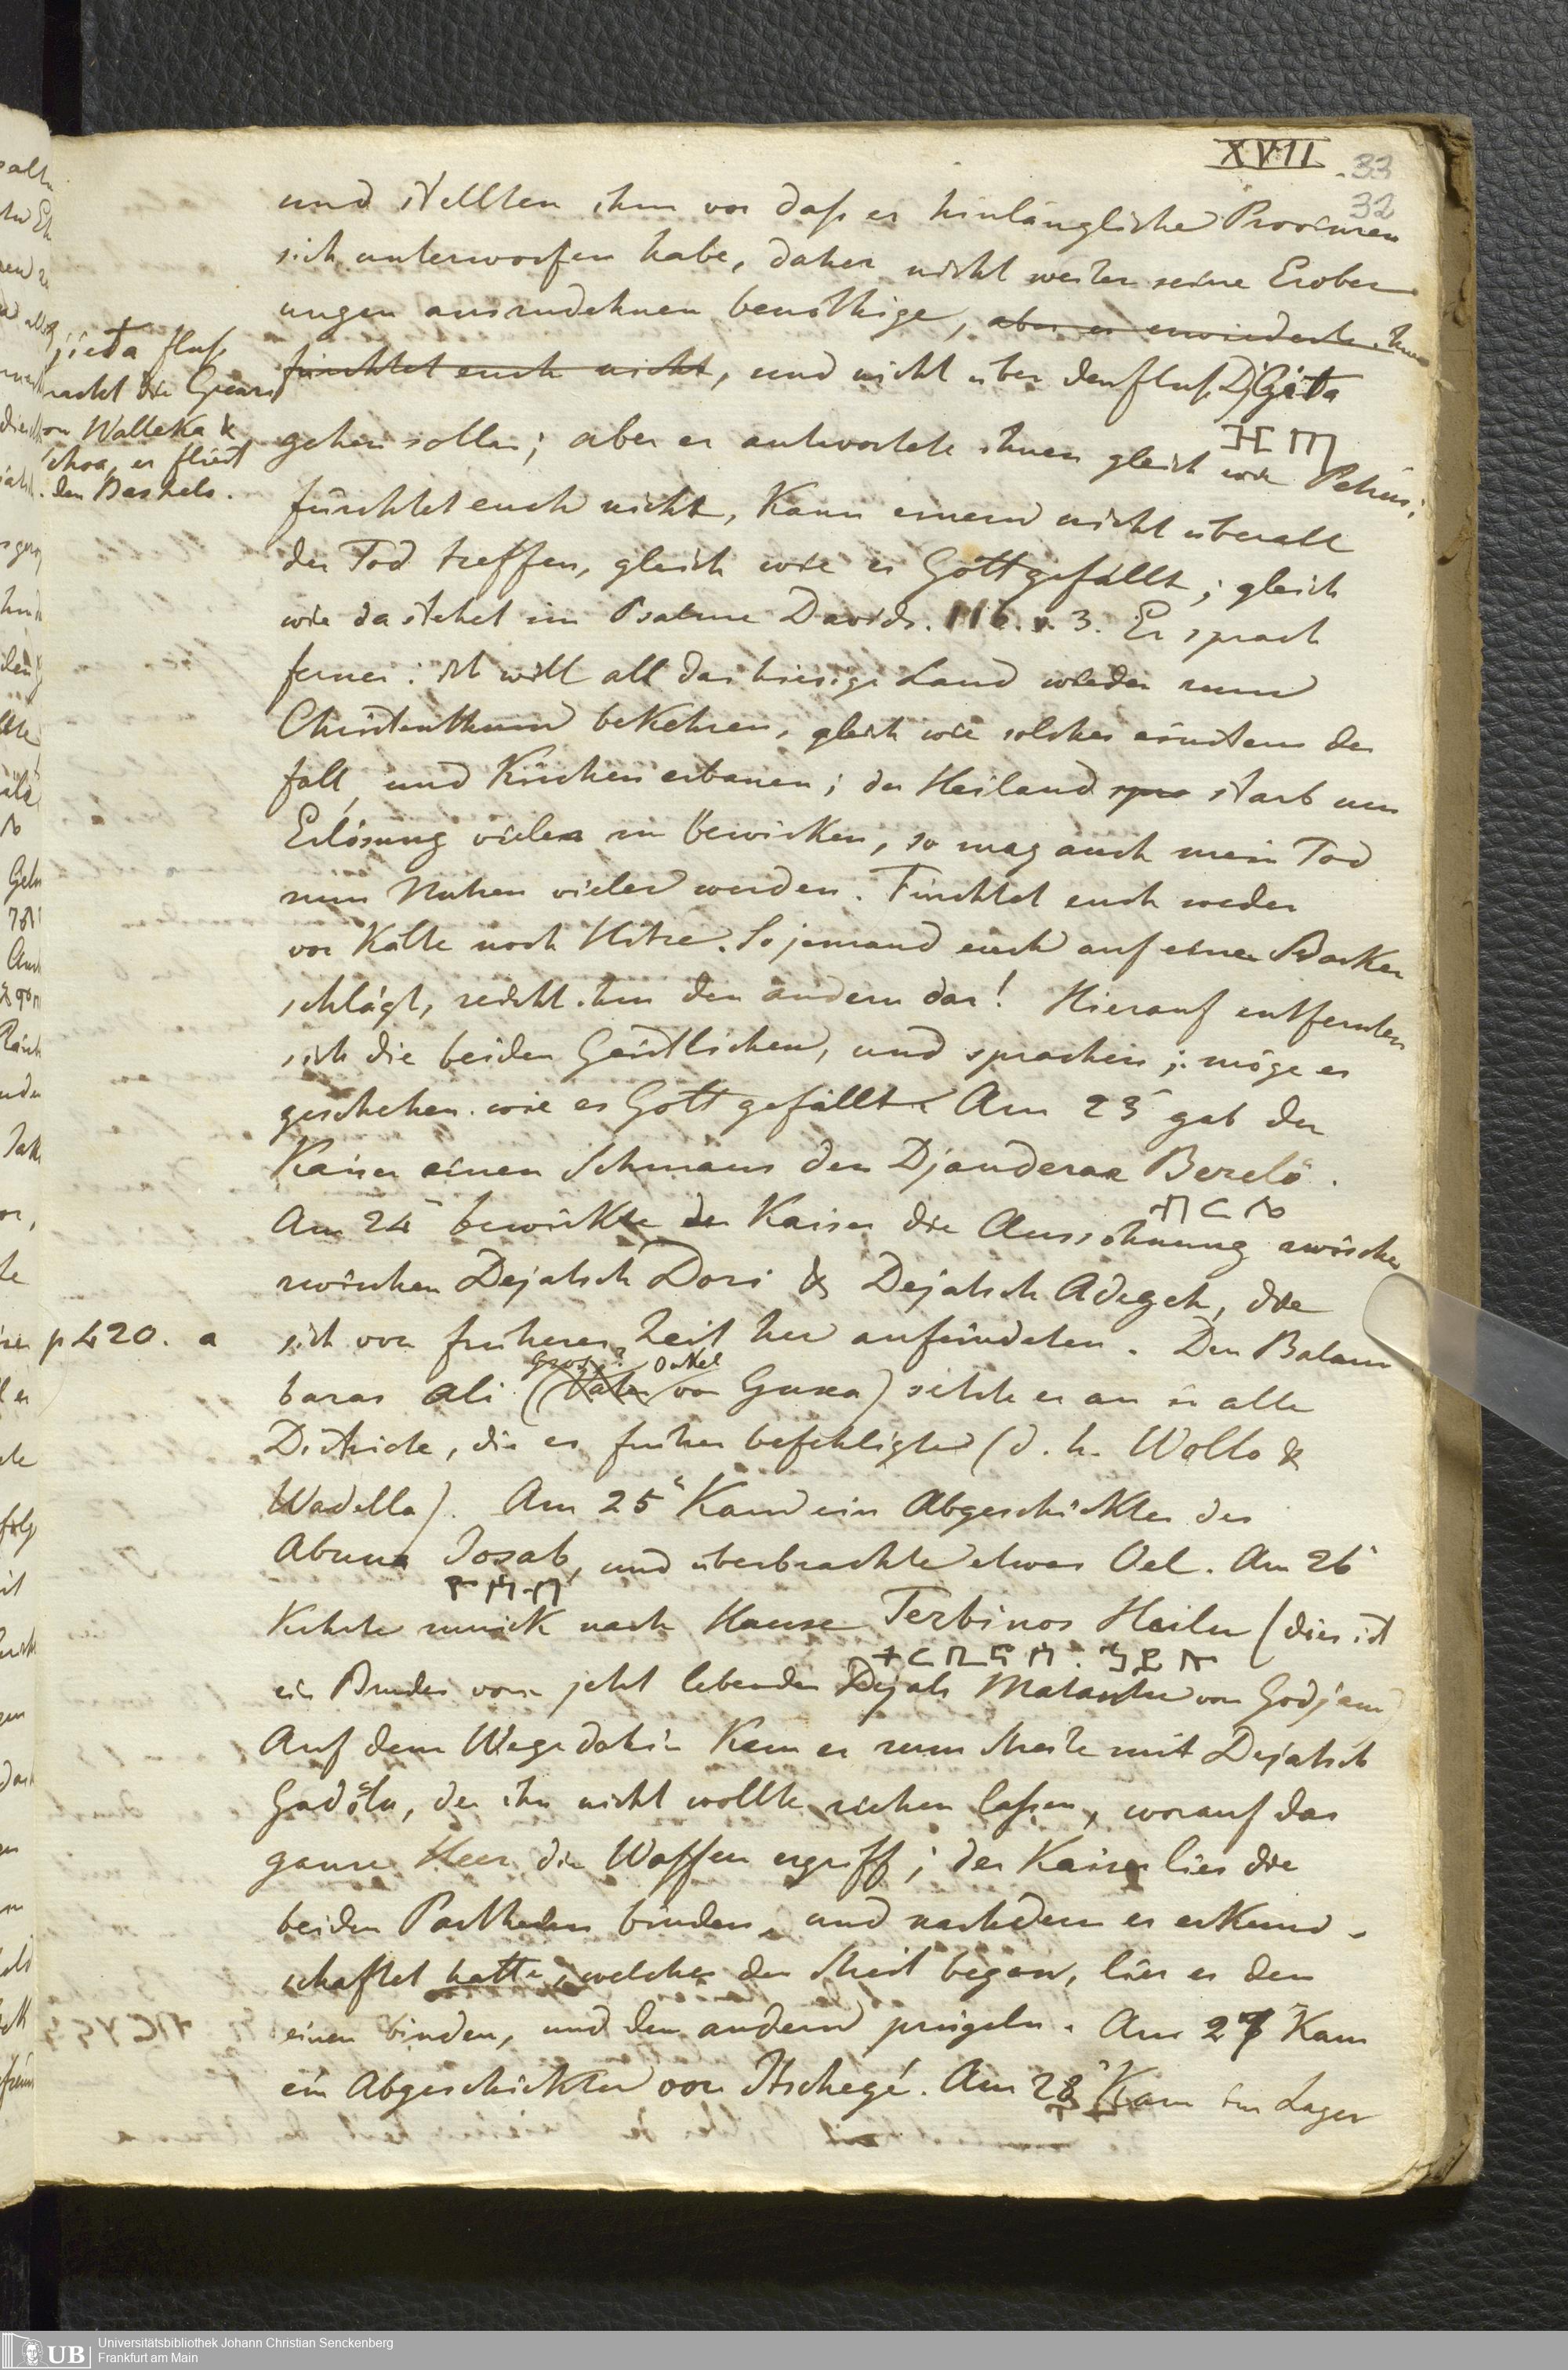 XVII
33
32
und stellten ihm vor daß er hinlängliche Provinzen
sich unterworfen habe, daher nicht weiter seine Erober
ungen auszudehnen benöthige, aber er erwiederte ihnen
fürchtet euch nicht, und nicht über den fluß Djiéta
gehen sollen; aber er antwortete ihnen gleich wie Petrus;
fürchtet euch nicht, Kann einem nicht überall
der Tod treffen, gleich wie es Gott gefällt; gleich
wie da stehet im Psalme Davids. 116. v. 3. Er sprach
ferner: ich will all das hiesige Land wieder zum
Christenthum beKehren, gleich wie solches einstens der
fall, und Kirchen erbauen; der Heiland starb um
Erlösung vieler zu bewirken, so mag auch mein Tod
zum Nutzen vieler werden. Fürchtet euch weder
vor Kälte noch Hitze. So jemand euch auf einen Backen
schlägt, reicht ihm den andern dar! Hierauf entfernten
sich die beiden Geistlichen, und sprachen; möge es
geschehen wie es Gott gefällt. Am 23 gab der
Kaiser einen Schmaus dem Djanderaa Berelé.
Am 24 bewirkte der Kaiser die Aussöhnung zwischen
zwischen Dejatsch Dori & Dejatsch Adegeh, die
sich von früherer Zeit her anfeindeten. Den Balam
baras Ali (Gros? Vater Onkel von Guxa) setzte er an in alle
Districte, die er früher befehligte (d. h. Wollo &
Wadella). Am 25 Kam ein Abgeschickter des
Abuna Josab, und überbrachte etwas Oel. Am 26
ዮሳብ
Kehrte zurück nach Hause Terbinos Heilu (dies ist
ተርቢኖስ፡ ኃይሉ
ein Bruder vom jetzt lebenden Dejats Matantu von Godjam
Auf dem Wege dahin Kam er zum Streite mit Dejatsch
Gadölu, der ihn nicht wollte ziehen laßen, worauf das
ganze Heer die Waffen ergriff; der Kaiser lies die
beiden Partheien binden, und nachdem er erKund-
schaftet hatte, welcher den Streit began, lies er den
einen binden, und den andern prügeln. Am 27 Kam
ein Abgeschickter von Itschegé. Am 28 Kam im Lager
fluß
macht die Grenze
von Walleka &
Schoa, er fliest
p 420. a
UB
Universitätsbibliothek Johann Christian Senckenberg
Frankfurt am Main